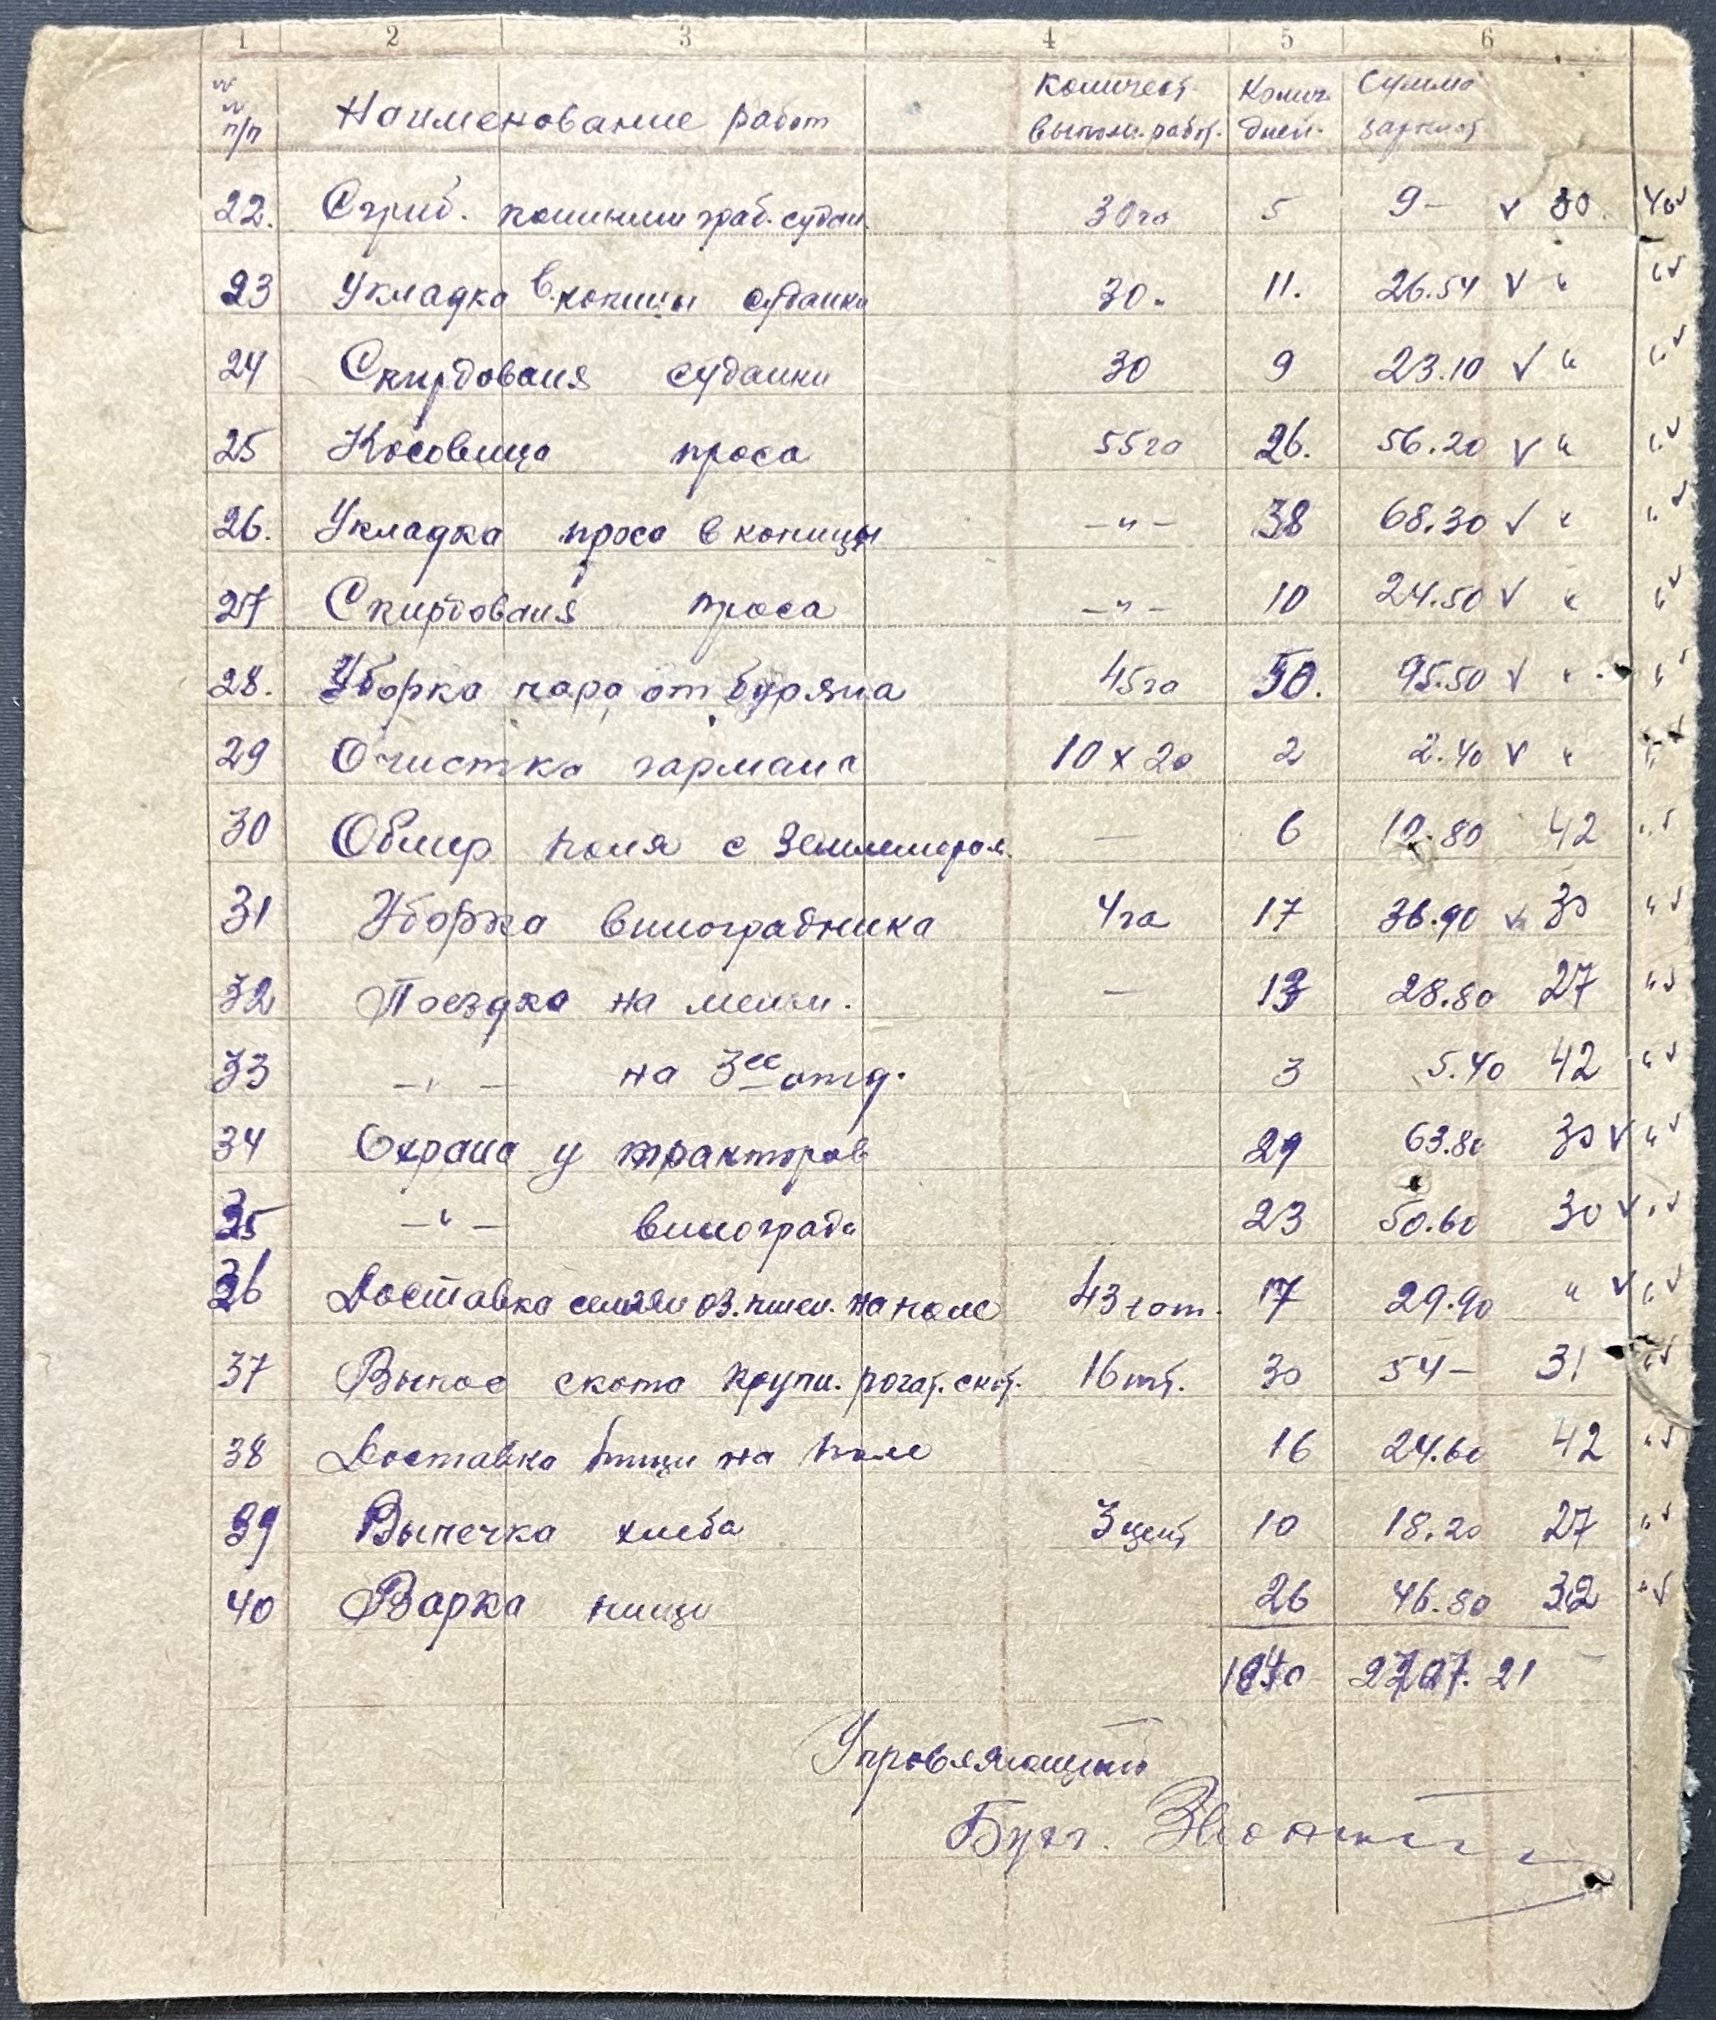 1 2 3 4 5 6
№№ п/п Наименование работ Количест. выполн. работ. Колич. дней. Сумма зарплат
22. Сгриб. конными граб. судан. 30 га 5 9- v 30. 40 v
23 Укладка в копицы суданки 30. 11. 26.54 v " " v
24 Скирдования суданки 30 9 23.10 v " " v
25 Косовица проса 55 га 26. 56.20 v " " v
26. Укладка проса в копицы -"- 38 68.30 v " " v
27 Скирдования проса -"- 10 24.50 v " " v
28. Уборка пара от буряна 45 га 50. 95.50 v " " v
29 Очистка гармана 10 x 20 2 2.40 v " " v
30 Обмер поля с землемером — 6 10.80 42 " v
31 Уборка виноградника 4 га 17 36.90 v 30 " v
32 Поездка на мельн. — 13 28.80 27 " v
33 -"- на 3ее отд. 3 5.40 42 " v
34 Охрана у тракторов 29 63.80 30 v " v
35 -"- винограда 23 50.60 30 v " v
36 Доставка семян оз. пшен. на поле 43 17 29.90 " v " v
37 Выпас скота крупн. рогат. скот. 16 шт. 30 54- 31 " v
38 Доставка пищи на поле 16 24.60 42 " v
39 Выпечка хлеба 3 цент 10 18.20 27 " v
40 Варка пищи 26 46.80 32 " v
21
Управляющий
Бухг.